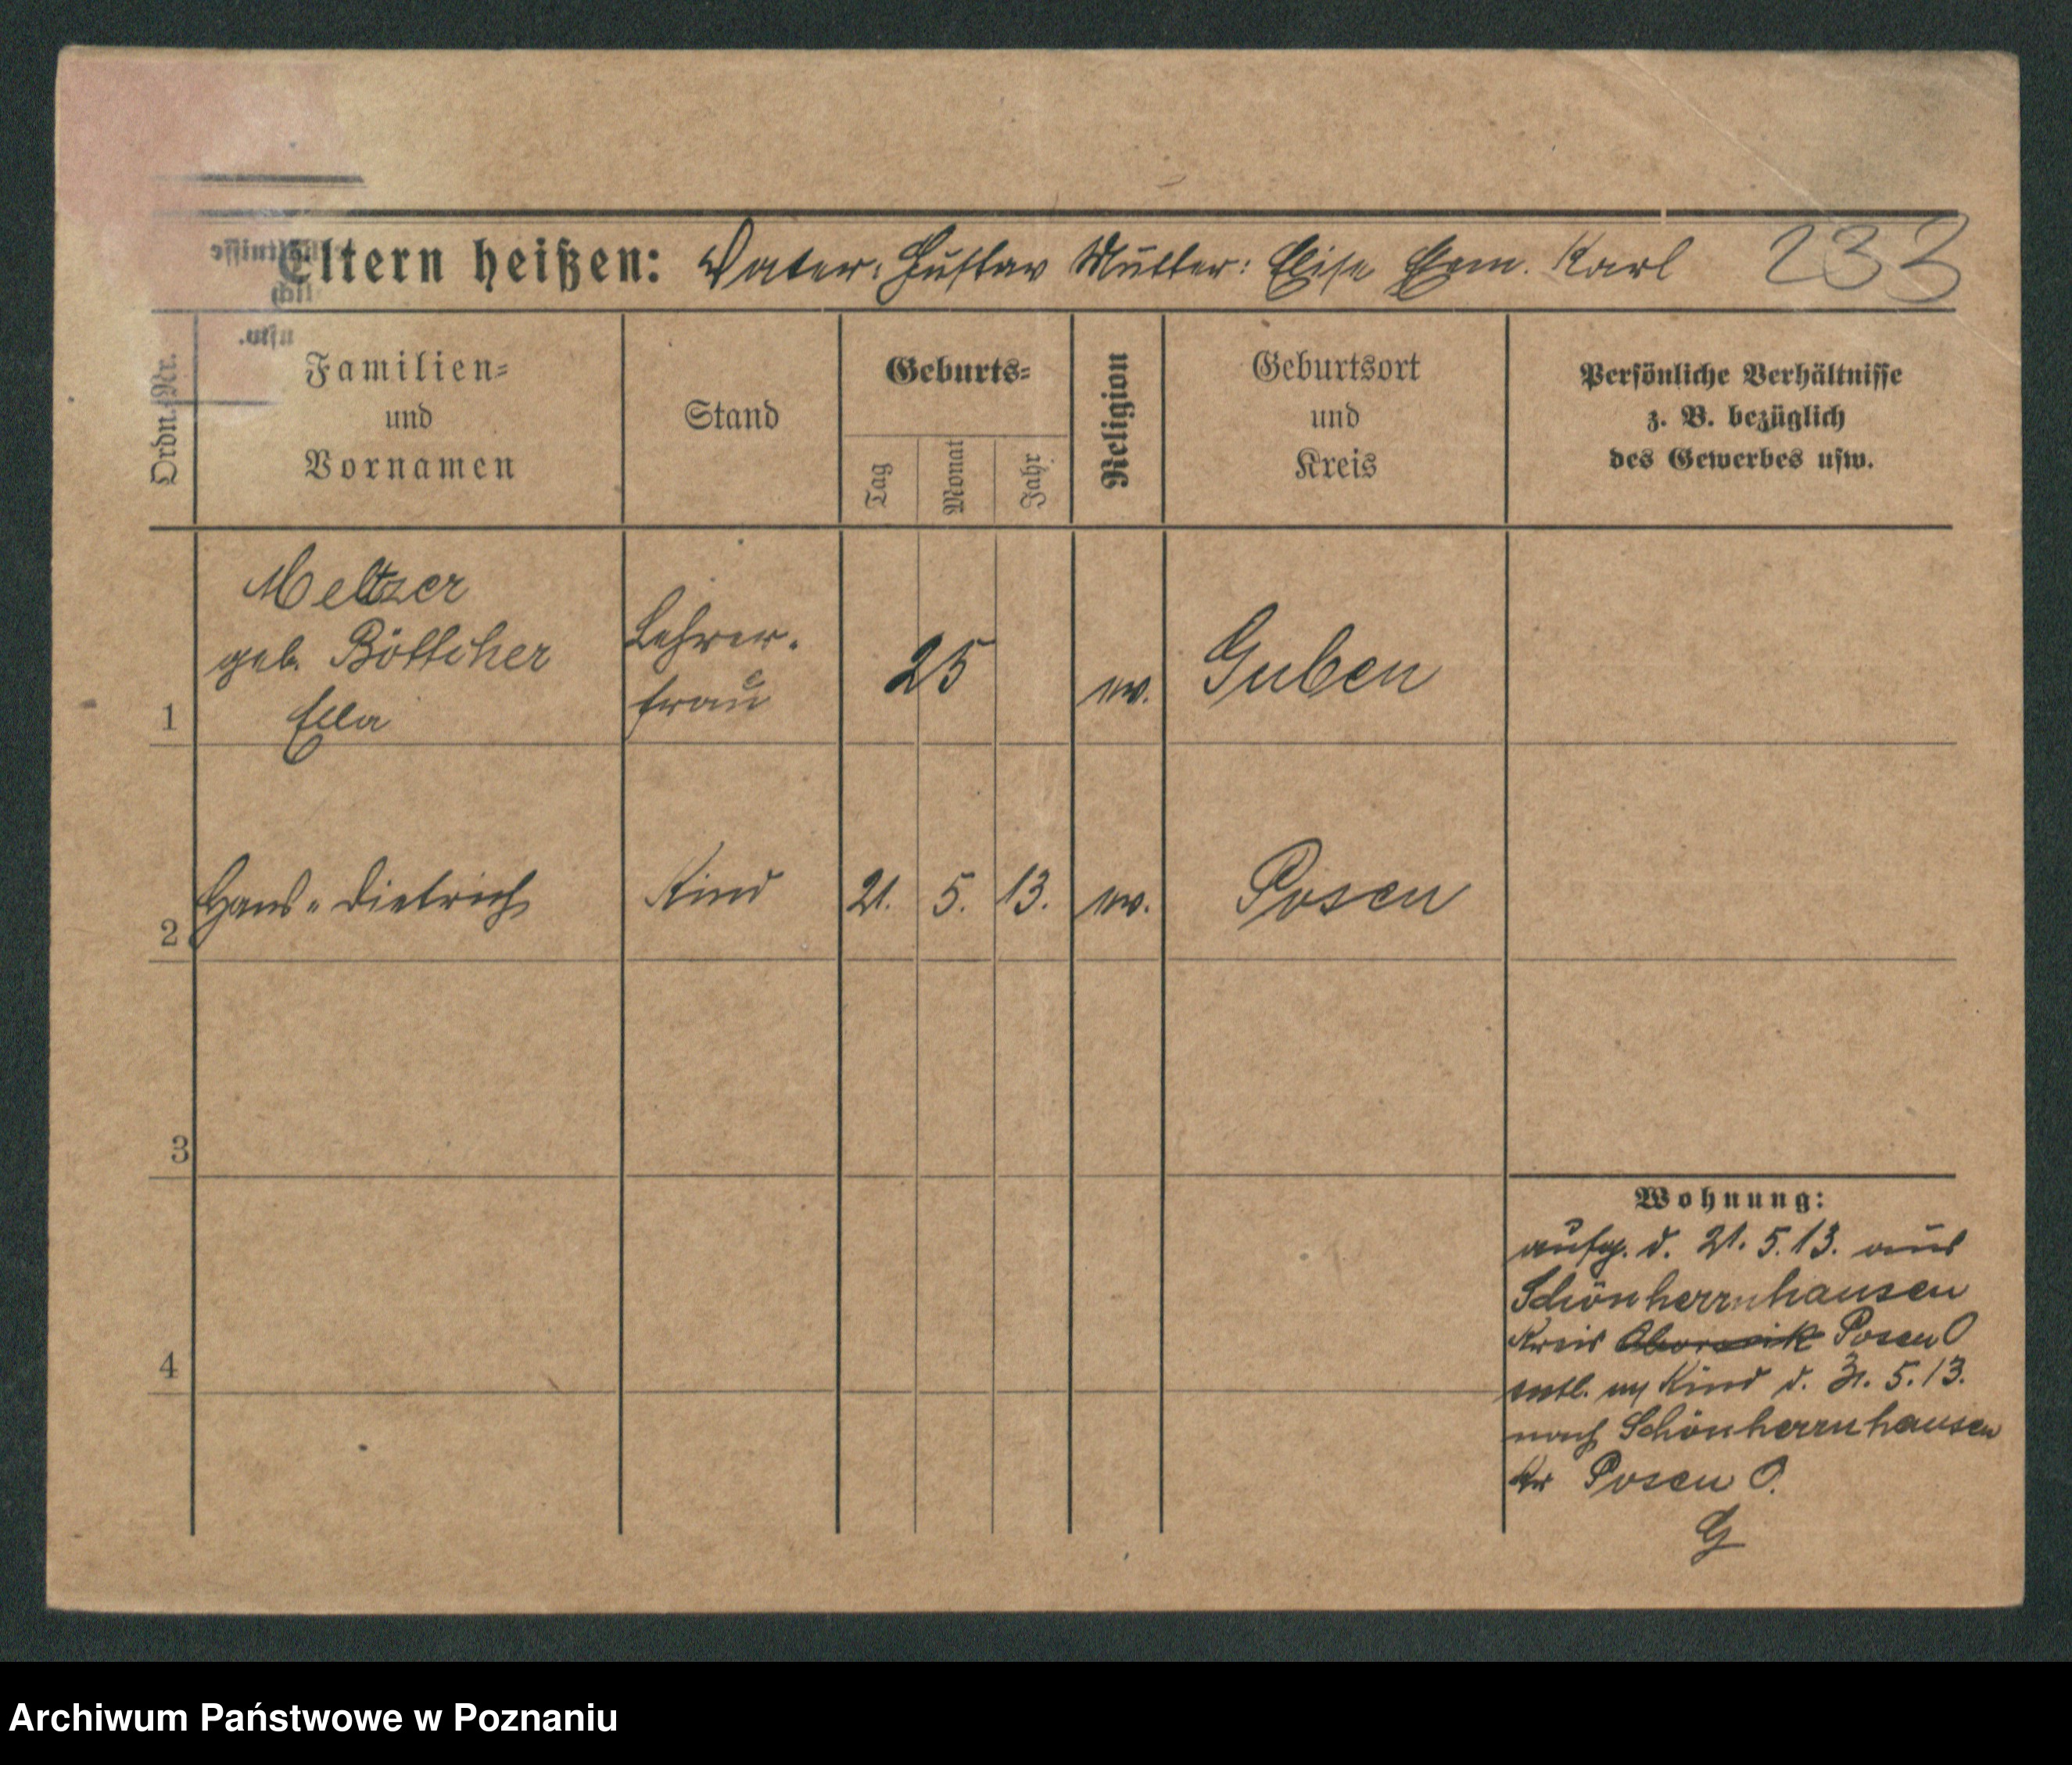 Eltern heißen: Vater: Gustav Mutter: Elise Ehem. Karl 233
Ordn.-Nr.
Familien-
und
Vornamen
Stand
Geburts-
Tag
Monat
Jahr
Religion
Geburtsort
und
Kreis
Persönliche Verhältnisse
z. B. bezüglich
des Gewerbes usw.
1
Meltzer
geb. Böttcher
Ella
Lehrer-
frau
25
ev.
Guben
2
Hans-Dietrich
Kind
21. 5. 13.
ev.
Posen
3
4
Wohnung:
aufg. d. 21. 5. 13. aus
Schönherrnhausen
Kreis Obornik Posen O
entl. m Kind d. 31. 5. 13.
nach Schönherrnhausen
Kr Posen O.
G
Archiwum Państwowe w Poznaniu